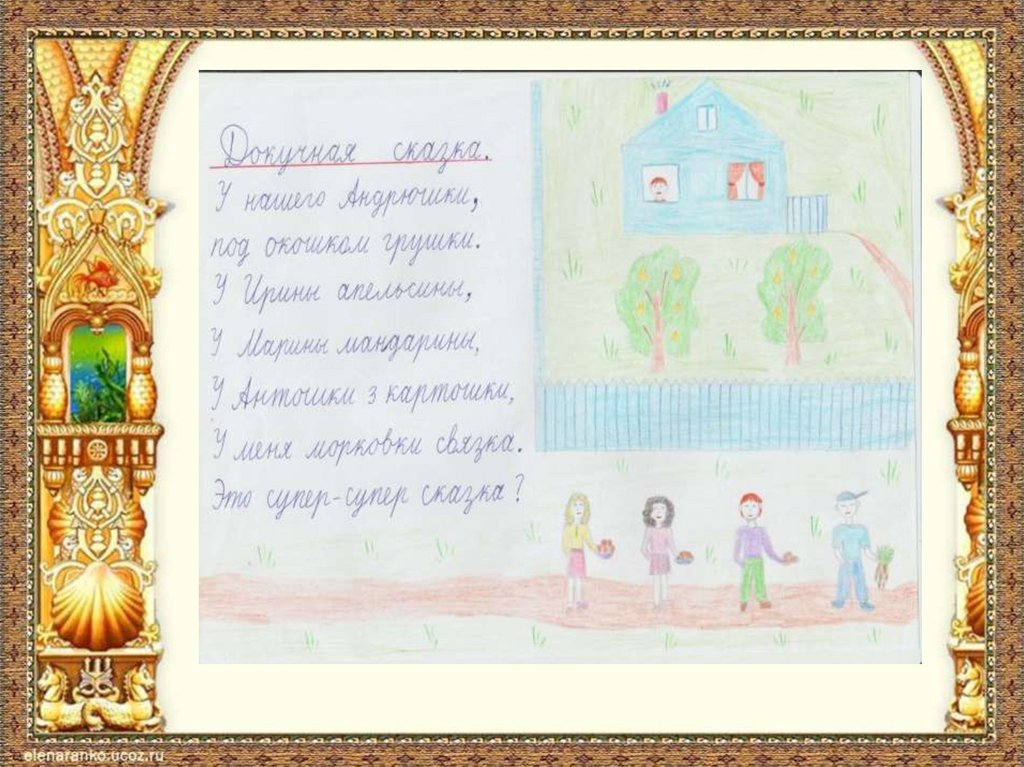 Докучная сказка.
У нашего Андрюшки,
под окошком грушки.
У Ирины апельсины,
У Марины мандарины,
У Антошки 3 картошки,
У меня морковки связка.
Это супер-супер сказка?
elenaranko.ucoz.ru